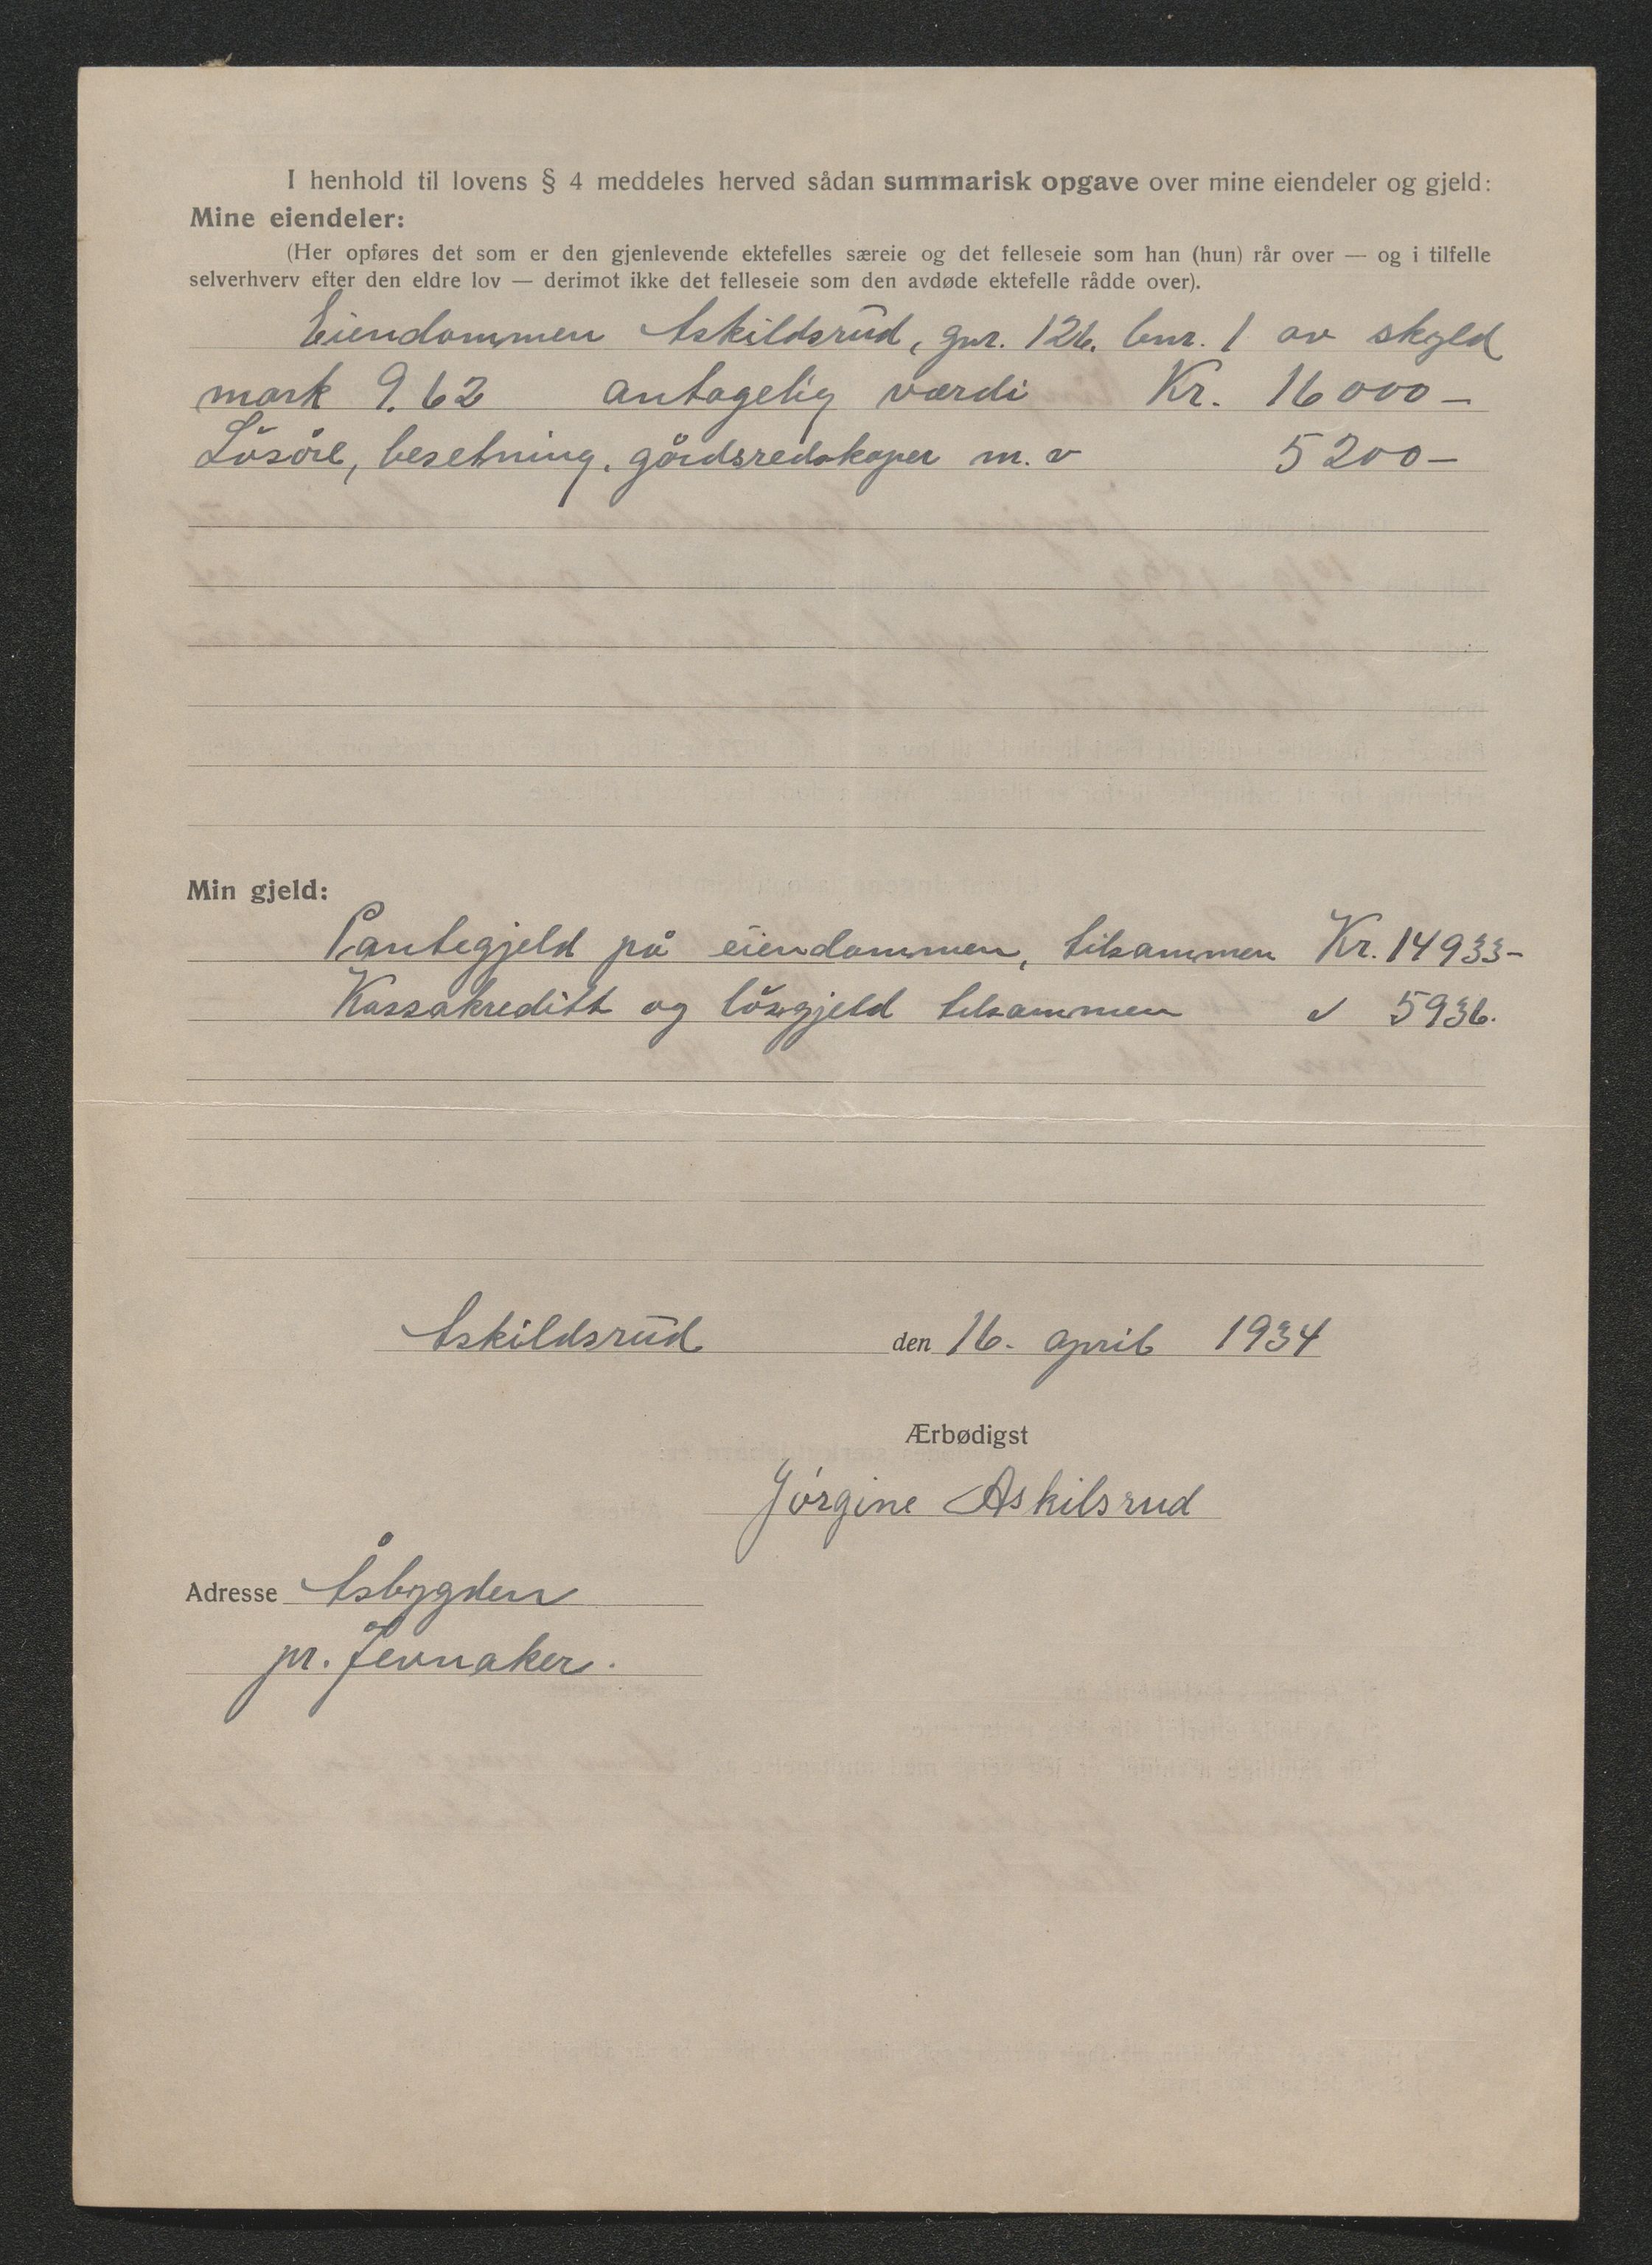 I henhold til lovens § 4 meddeles herved sådan summarisk opgave over mine eiendeler og gjeld:
Mine eiendeler:
(Her opføres det som er den gjenlevende ektefelles særeie og det felleseie som han (hun) rår over — og i tilfelle
selverhverv efter den eldre lov — derimot ikke det felleseie som den avdøde ektefelle rådde over).
Eiendommen Askildsrud, gnr. 126. bnr. 1 av skyld
mark 9.62 antagelig værdi Kr. 16000–
Lösöre, besetning, gårdsredskaper m.v 5200–
Min gjeld:
Pantegjeld på eiendommen, tilsammen Kr. 14933–
Kassakreditt og lösgjeld tilsammen 5936.
Askildsrud den 16. april 1934
Ærbødigst
Jörgine Askilsrud
Adresse Åsbygden
pr. Jevnaker.